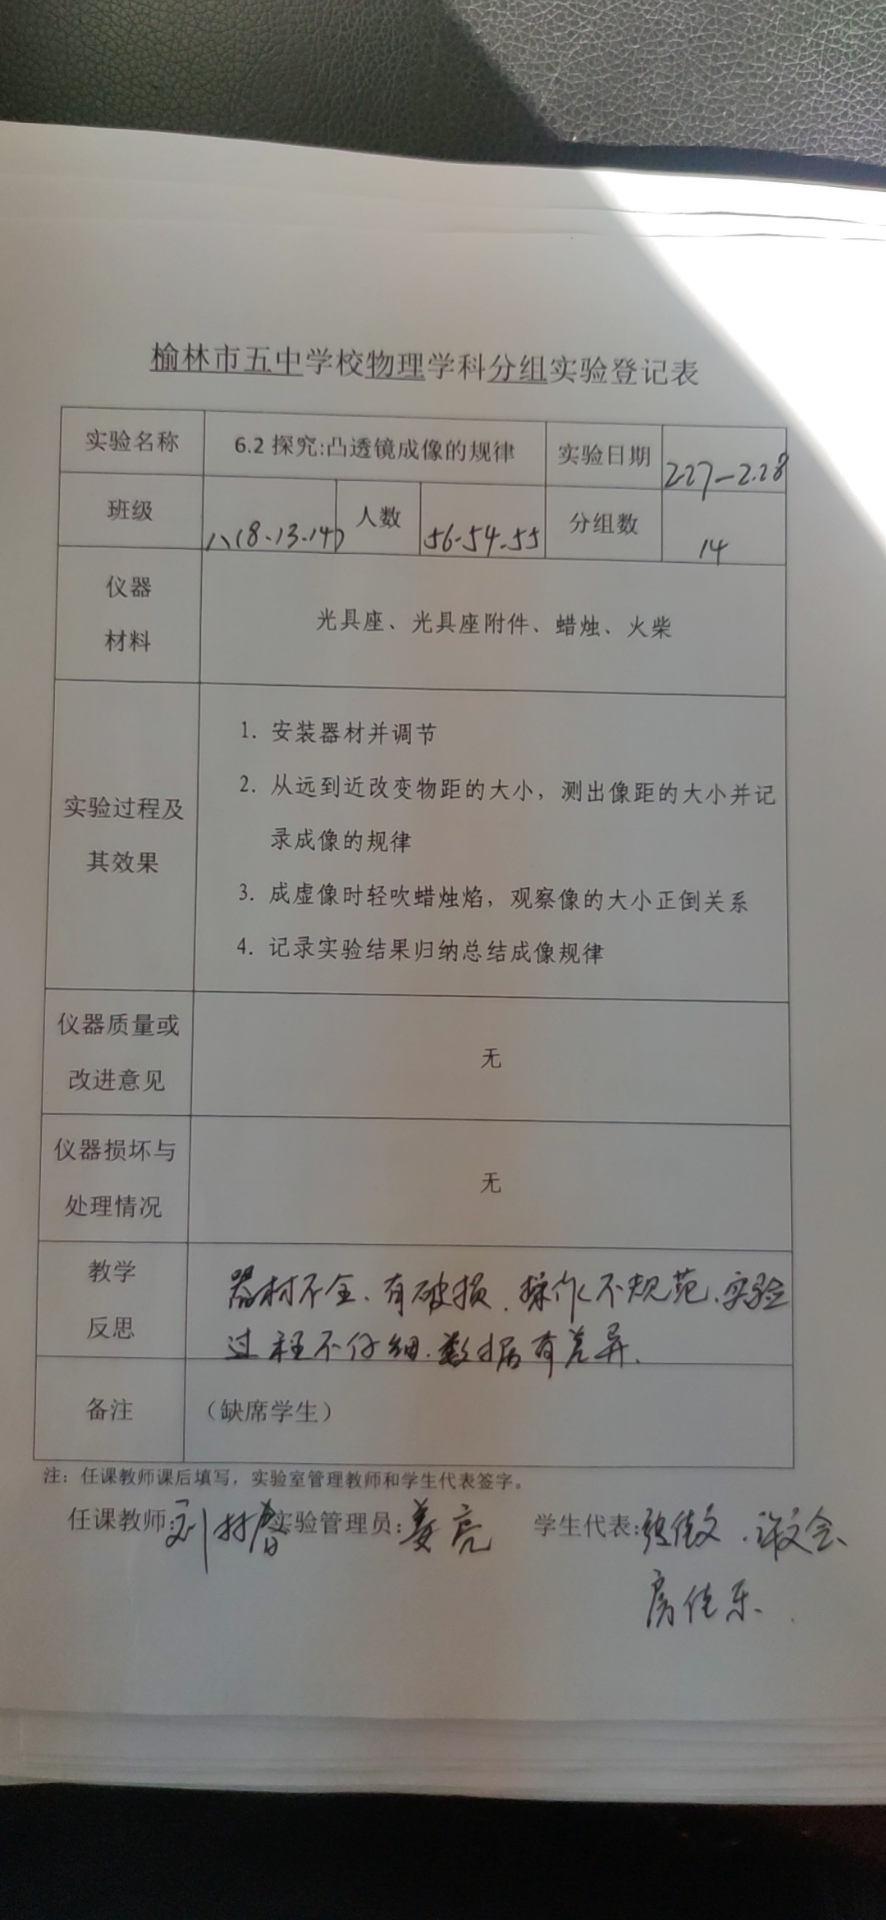 榆林市五中学校物理学科分组实验登记表
实验名称 6.2 探究:凸透镜成像的规律 实验日期 2.27-2.28
班级 八(8、13、14) 人数 56.54.55 分组数 14
仪器
材料
光具座、光具座附件、蜡烛、火柴
实验过程及
其效果
1. 安装器材并调节
2. 从远到近改变物距的大小，测出像距的大小并记
录成像的规律
3. 成虚像时轻吹蜡烛焰，观察像的大小正倒关系
4. 记录实验结果归纳总结成像规律
仪器质量或
改进意见
无
仪器损坏与
处理情况
无
教学
反思
器材不全、有破损、操作不规范、实验
过程不仔细.数据有差异.
备注 （缺席学生）
注：任课教师课后填写，实验室管理教师和学生代表签字。
任课教师: 实验管理员: 姜亮 学生代表:
房佳乐、